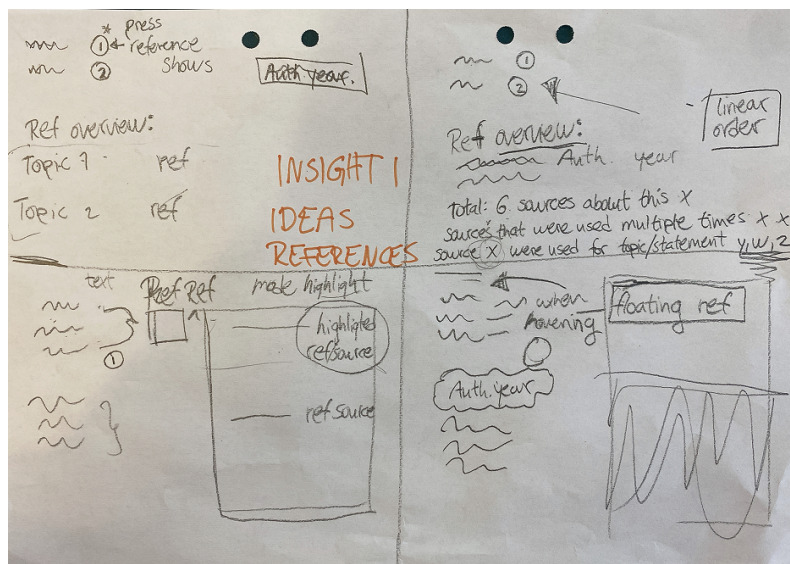 * press
① reference
② shows
Auth. year.
Ref overview:
Topic 1 ref
Topic 2 ref
INSIGHT 1
IDEAS
REFERENCES
①
②
linear
order
Ref overview:
Auth. year
Total: 6 sources about this X
sources that were used multiple times X X
source X were used for topic/statement y, w, z
text
①
Ref
make highlight
highlighted
refsource
ref source
when
hovering
Auth. year
floating ref